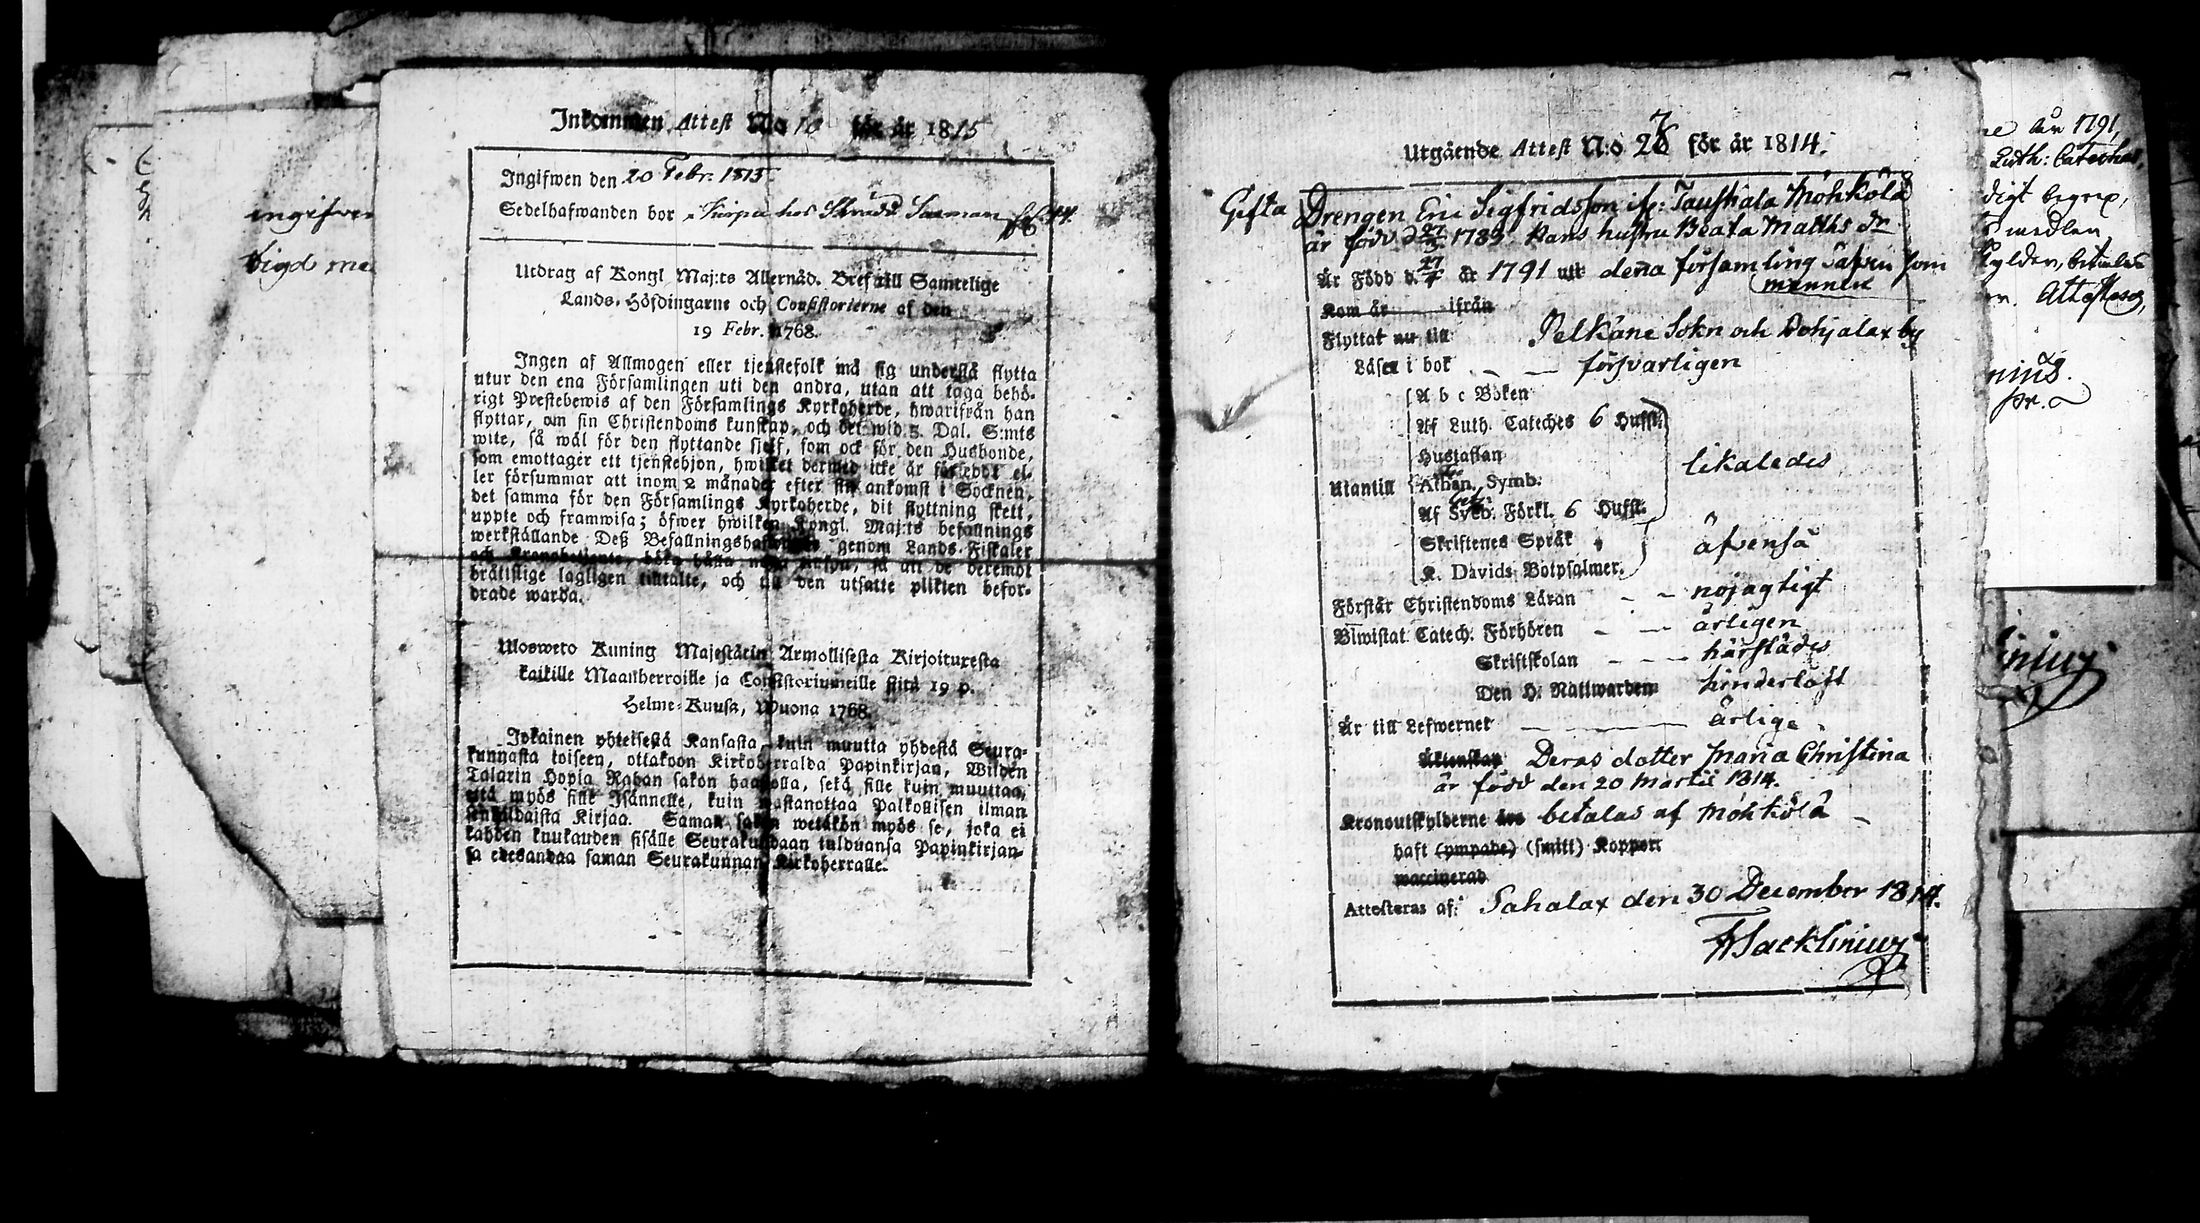 ingifwen
tigd me
Inkommen Attest No 10 för år 1815
Ingifwen den 20 Febr. 1815
Sedelhafwanden bor
Utdrag af Kongl Maj:ts Allernåd. Bref till Samtelige
Lands-Höfdingarne och Consistorierne af den
19 Febr. 1768.
Ingen af Allmogen eller tjenstefolk må sig understå flytta
utur den ena Församlingen uti den andra, utan att taga behö-
rigt Prestebewis af den Församlings Kyrkoherde, hwarifrån han
flyttar, om sin Christendoms kunskap, och det wid 5. Dal. S:mts
wite, så wäl för den flyttande sjelf, som ock för den Husbonde,
som emottager ett tjenstehjon, hwilket dermed icke är försedt el-
ler försummar att inom 2 månader efter sin ankomst i Socknen,
det samma för den Församlings Kyrkoherde, dit flyttning skett,
uppte och framwisa; öfwer hwilken Kongl. Maj:ts befallnings
werkställande Deß Befallningshafwande genom Lands-Fiskaler
och Kronobetjente, böra hålla noga så att de deremot
brätslige lagligen tilltalte, och til den utsatte plikten befor-
drade warda.
Ulosweto Kuning Majestätin Armollisesta Kirjoituresta
kaikille Maanherroille ja Consistoriumeille siitä 19 p.
Helme-Kuusa, Wuona 1768.
Jokainen yhteisestä Kansasta, kuin muutta yhdestä Seura-
kunnasta toiseen, ottakoon Kirkoherralda Papinkirjan, Wiiden
Talarin Hopia Rahan sakon haastolla, sekä sille kuin muuttaa,
että myös sille Isännelle, kuin wastanottaa Palkollisen ilman
senkaldaista Kirjaa. Saman sakon wetäkön myös se, joka ei
kahden kuukauden sisälle Seurakundaan tulduansa Papinkirjan-
sa edesandaa saman Seurakunnan Kirkoherralle.
Utgående Attest N:o 27 för år 1814.
Gifta Drengen Eric Sigfridsson ifr: Taustiala Möhkölä
är född d 27 1789 Hans hustru Beata Matths dr
Är Född d. 27 år 1791 uti denna församling äfven som
mannen
Kom år ifrån
Flyttat nu till Pelkäne Sokn och Pohjalax by
Läser i bok försvarligen
A b c Boken
Af Luth. Cateches 6 Hufst.
Hustaflan
Utantill Athan. Symb. likaledes
Af Sveb. Förkl. 6 Hufst.
Skriftenes Språk äfvenså
K. Davids Botpsalmer.
Förstår Christendoms Läran nöjagtigt
Biwistat Catech. Förhören årligen
Skriftskolan härstädes
Den H. Nattwarden hinderlöst
Är till Lefwernet ärlige
Äktenskap Deras dotter Maria Christina
är född den 20 Martii 1814.
Kronoutskylderne äro betalas af Möhkölä
haft (ympade) (smitt) Koppor
waccinerad
Attesteras af: Sahalax den 30 December 1814.
år 1791
Luth: Cateches
digt begrep,
medlen
betalas
Attesteras
nius
pr.